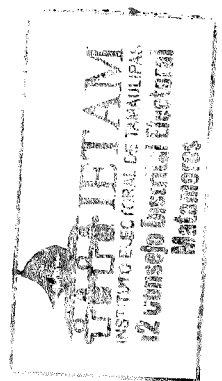 IETAM
INSTITUTO ELECTORAL DE TAMAULIPAS
12 Consejo Distrital Electoral
Matamoros